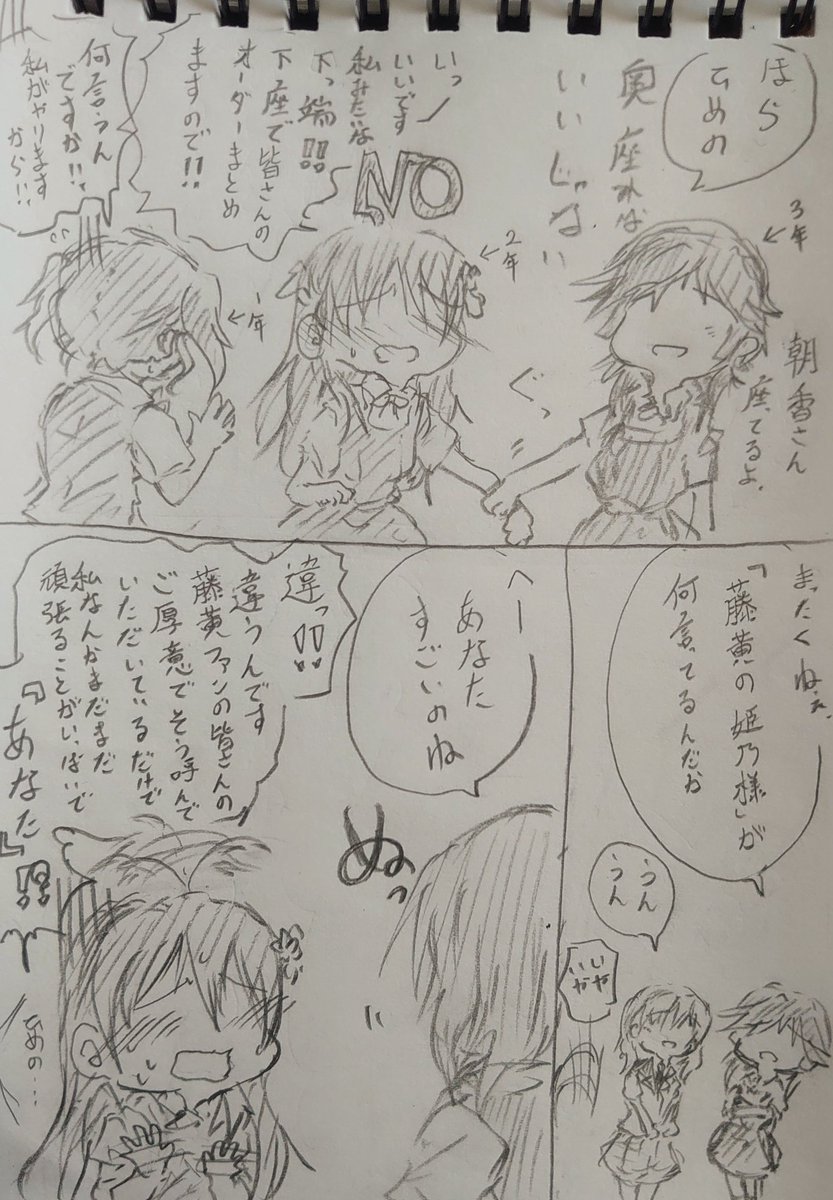 ほら
ひめの
奥座れば
いいじゃない
←3年
朝香さん
座ってるよ.
ぐっ
←2年
NO
いっ
いいです
私みたいな
下っ端!!
下座で皆さんの
オーダーまとめ
ますので!!
←1年
何言うん
ですか!!
私がやります
から!!
まったくねぇ
「藤黄の姫乃様」が
何言ってるんだか
うん
うん
いや
いや
へー
あなた
すごいのね
ぬっ
違っ!!
違うんです
藤黄ファンの皆さんの
ご厚意でそう呼んで
いただいているだけで
私なんかまだまだ
頑張ることがいっぱいで
『あなた』!?
あの…